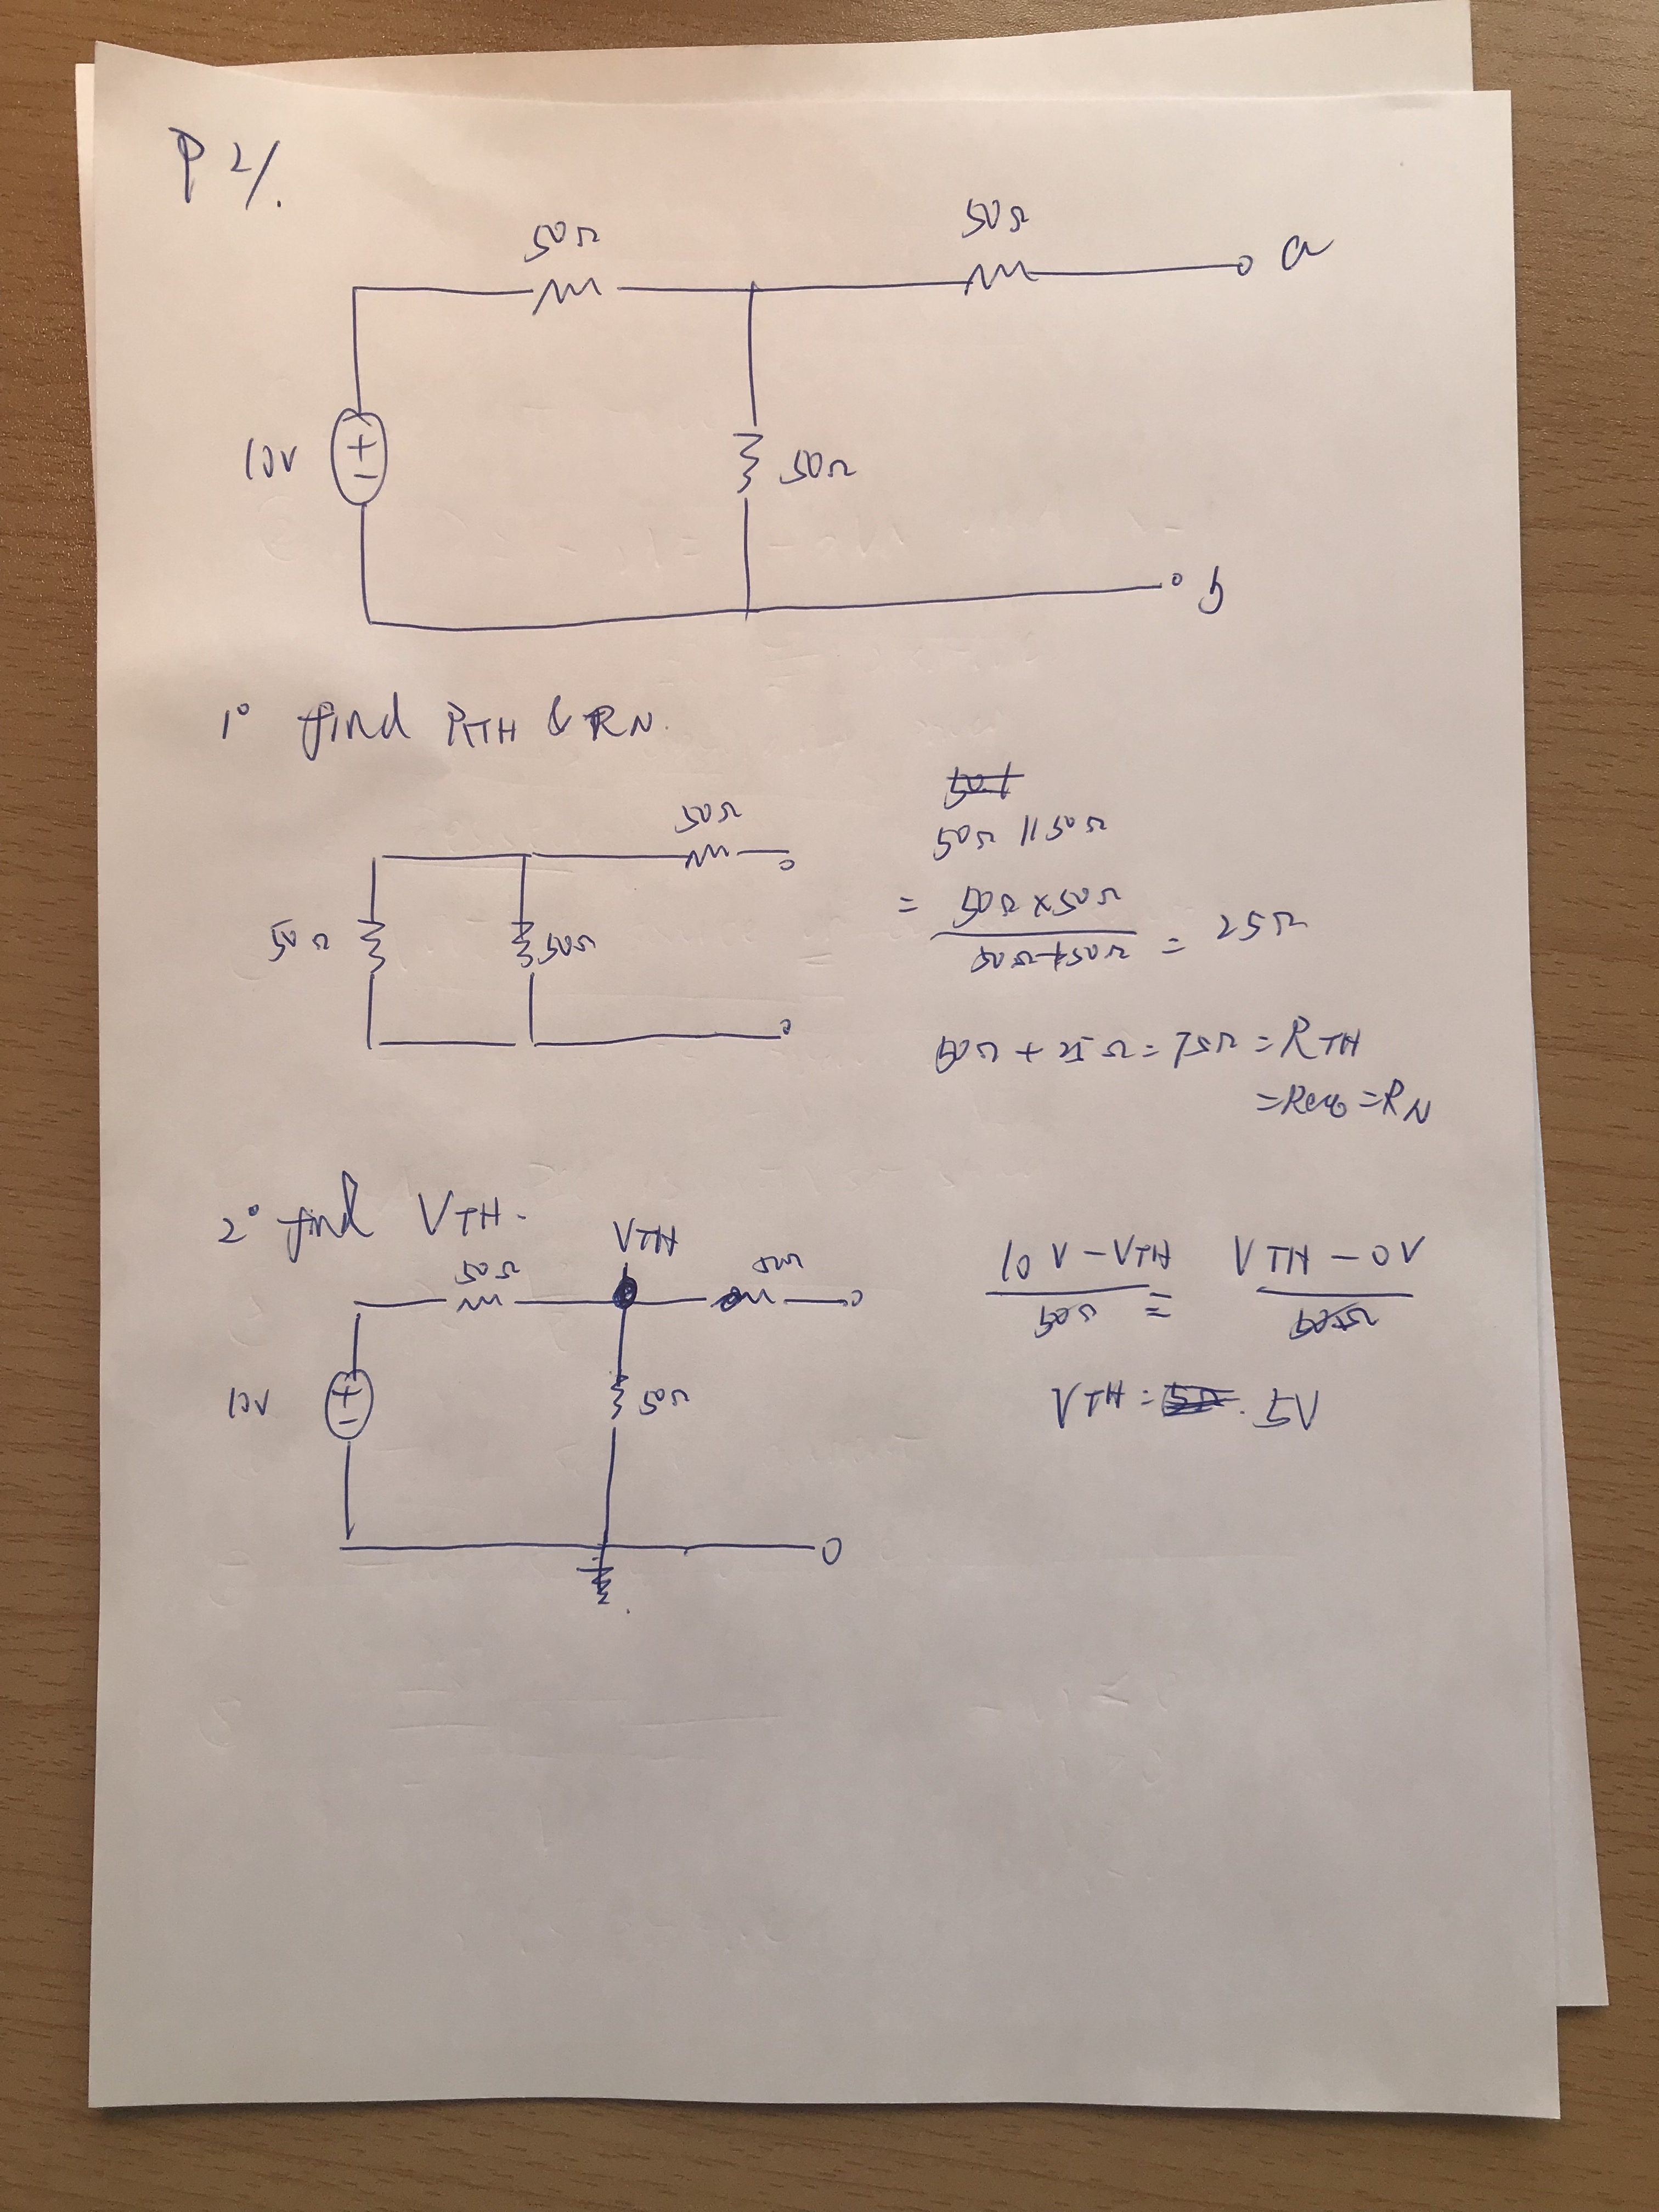 P2/.
50Ω
50Ω
a
10V
50Ω
b
1° find RTH & RN.
50Ω
50Ω
50Ω
50Ω || 50Ω
= 50Ω x 50Ω
50Ω + 50Ω = 25Ω
50Ω + 25Ω = 75Ω = RTH
= Req = RN
2° find VTH.
VTH
50Ω
50Ω
10V
50Ω
10V - VTH = VTH - 0V
50Ω 50Ω
VTH = 5V